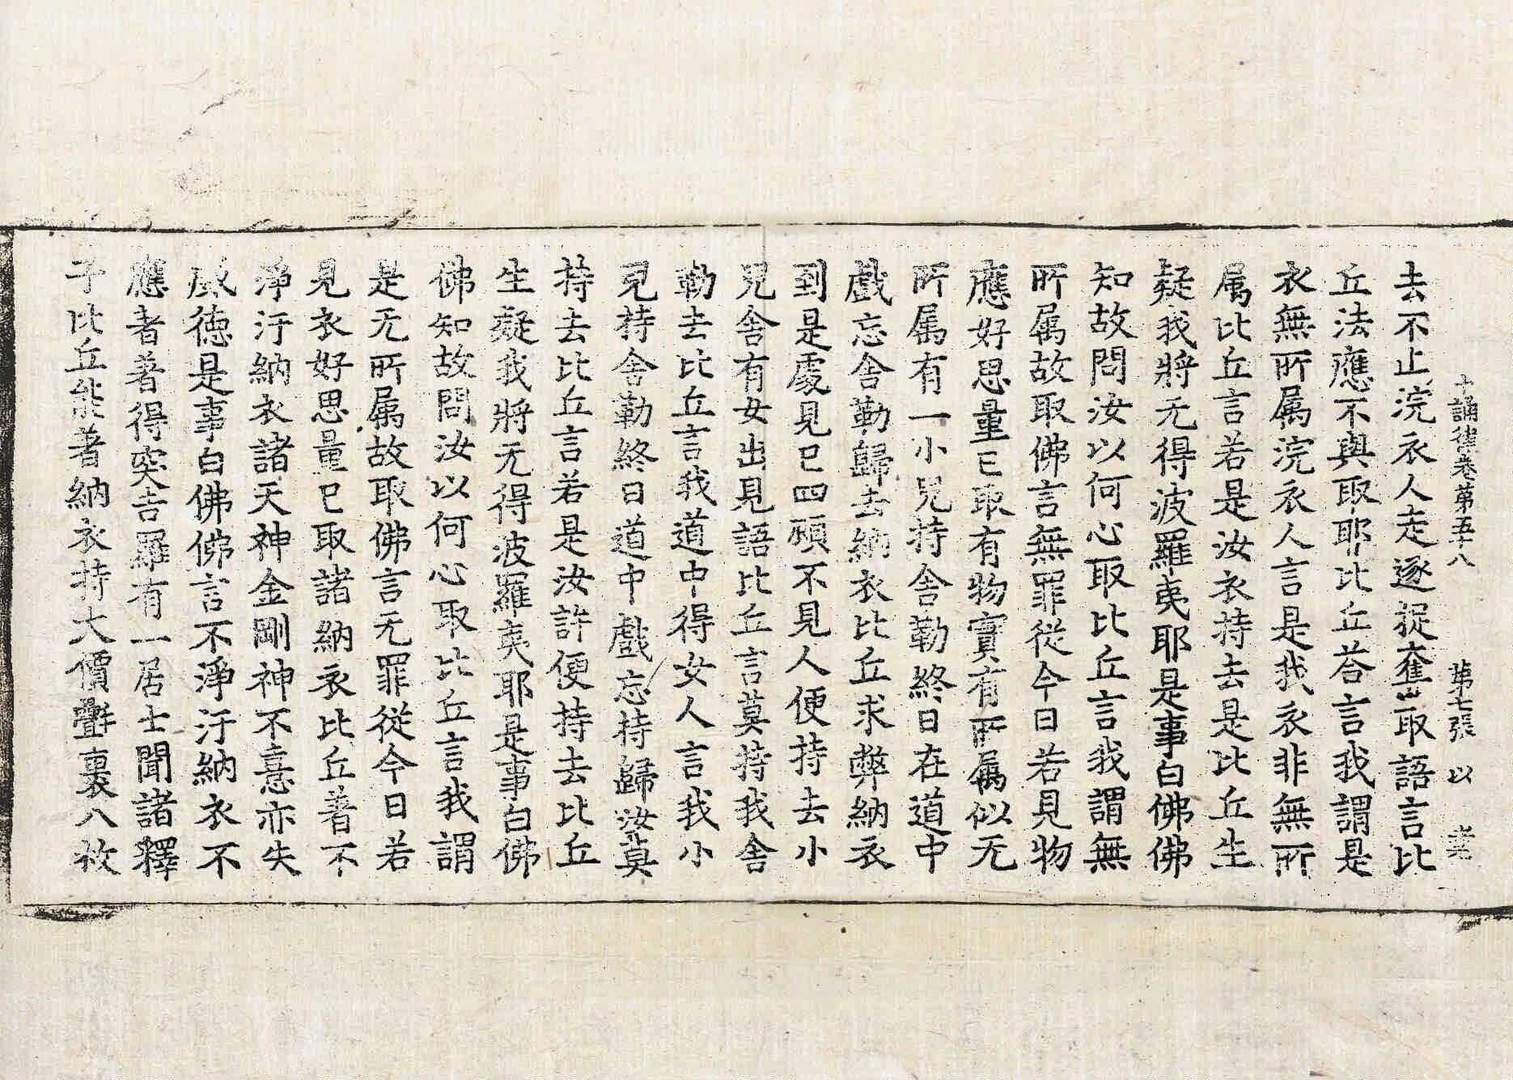 十誦律卷第五十八　第七張　以
去不止浣衣人走逐捉奪取語言比
丘法應不與取耶比丘荅言我謂是
衣無所属浣衣人言是我衣非無所
属比丘言若是汝衣持去是比丘生
疑我將无得波羅夷耶是事白佛佛
知故問汝以何心取比丘言我謂無
所属故取佛言無罪從今日若見物
應好思量已取有物實有所属似无
所属有一小兒持舍勒終日在道中
戲忘舍勒歸去納衣比丘求弊納衣
到是處見已四頋不見人便持去小
兒舍有女出見語比丘言莫持我舍
勒去比丘言我道中得女人言我小
兒持舍勒終日道中戲忘持歸汝莫
持去比丘言若是汝許便持去比丘
生疑我將无得波羅夷耶是事白佛
佛知故問汝以何心取比丘言我謂
是无所属故取佛言无罪從今日若
見衣好思量已取諸納衣比丘著不
淨汙納衣諸天神金剛神不憙亦失
威德是事白佛佛言不淨汙納衣不
應著著得突吉羅有一居士聞諸釋
子比丘能著納衣持大價㲲裹八枚